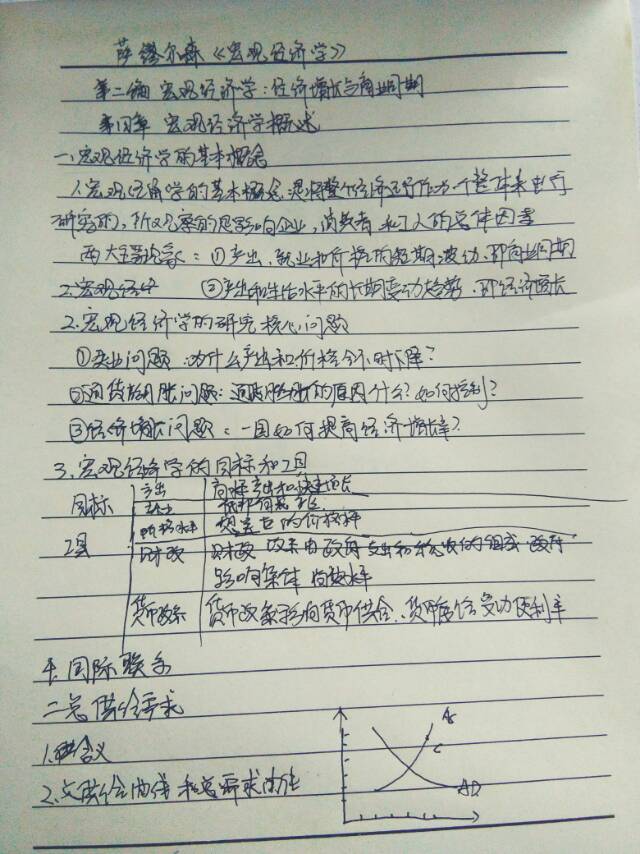 萨缪尔森《宏观经济学》
第二编 宏观经济学:经济增长与商业周期
第四章 宏观经济学概述
一.宏观经济学的基本概念
1.宏观经济学的基本概念是将整个经济运行作为一个整体来进行
研究的,所观察的是影响企业,消费者和工人的总体因素
两大主题 ①产出、就业和价格的短期波动,即商业周期
2.宏观经 ②产出和生活水平的长期变动趋势,即经济增长
2.宏观经济学的研究核心问题
①失业问题:为什么产出和价格会不时下降?
②通货膨胀问题:通货膨胀的原因什么?如何控制?
③经济增长问题:一国如何提高经济增长率?
3.宏观经济学的目标和工具
目标 产出 高水平产出和快速增长
物价水平 稳定的价格水平
工具 财政 财政政策由政府支出和税收的组成
影响集体消费水平
货币政策 货币政策影响货币供给、货币 利率
4.国际联系
二总供给需求
1.含义
2.总供给曲线和总需求曲线
AS
C
AD